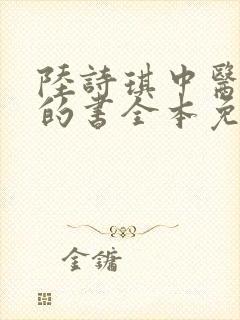 陸詩琪中醫
的書全本免
金鏞